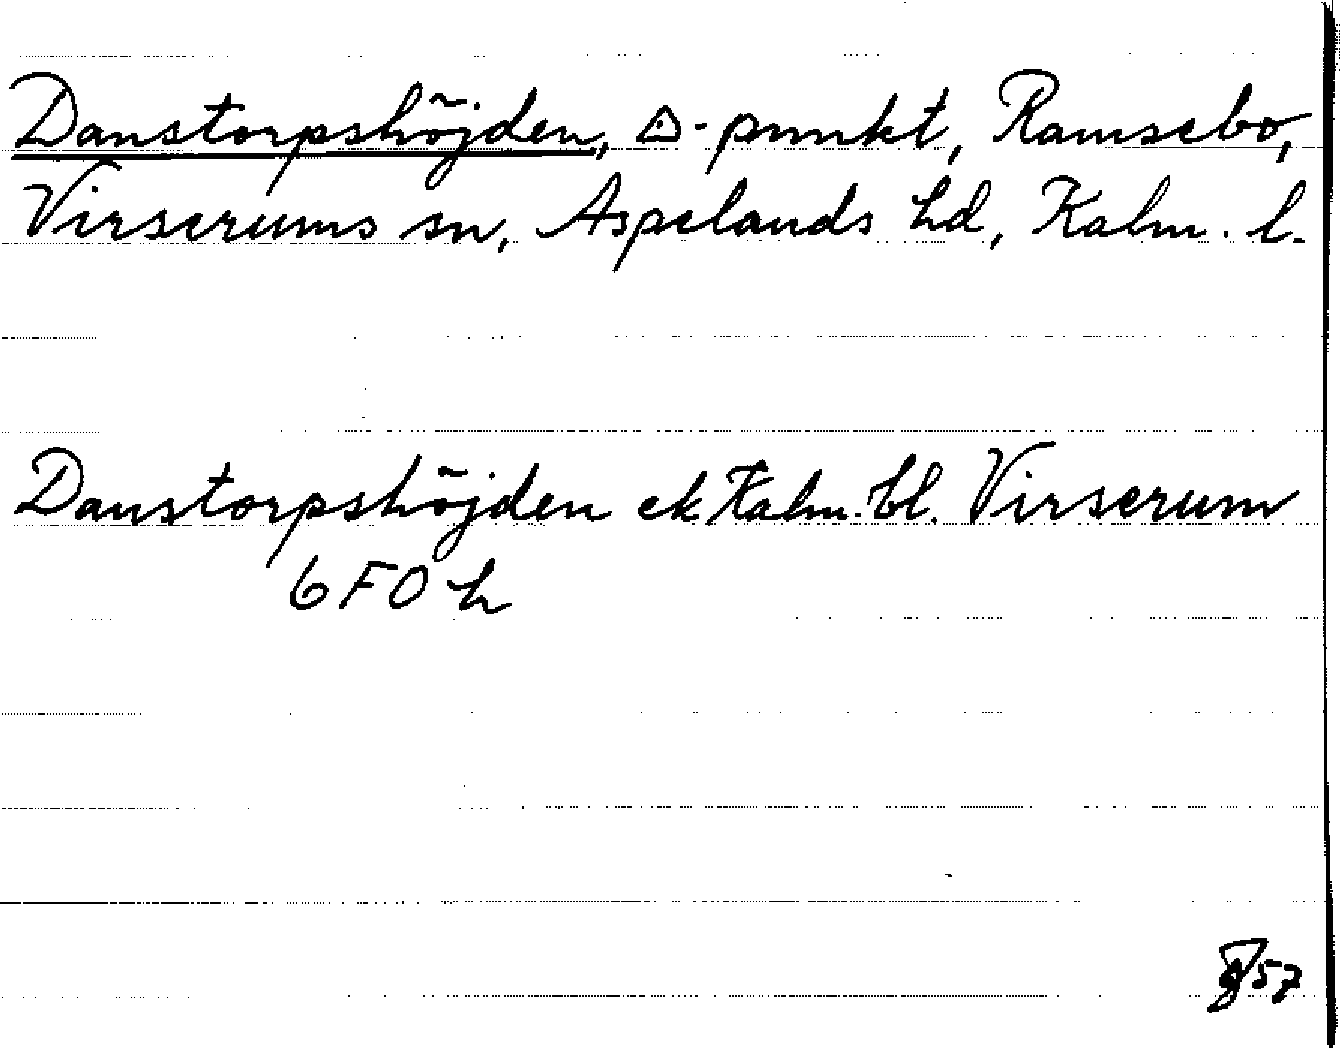 Danstorpshöjden, △-punkt, Ramsebo,
Virserums sn, Aspelands hd, Kalm. l.
Danstorpshöjden ek Kalm. bl. Virserum
6 F O h
57